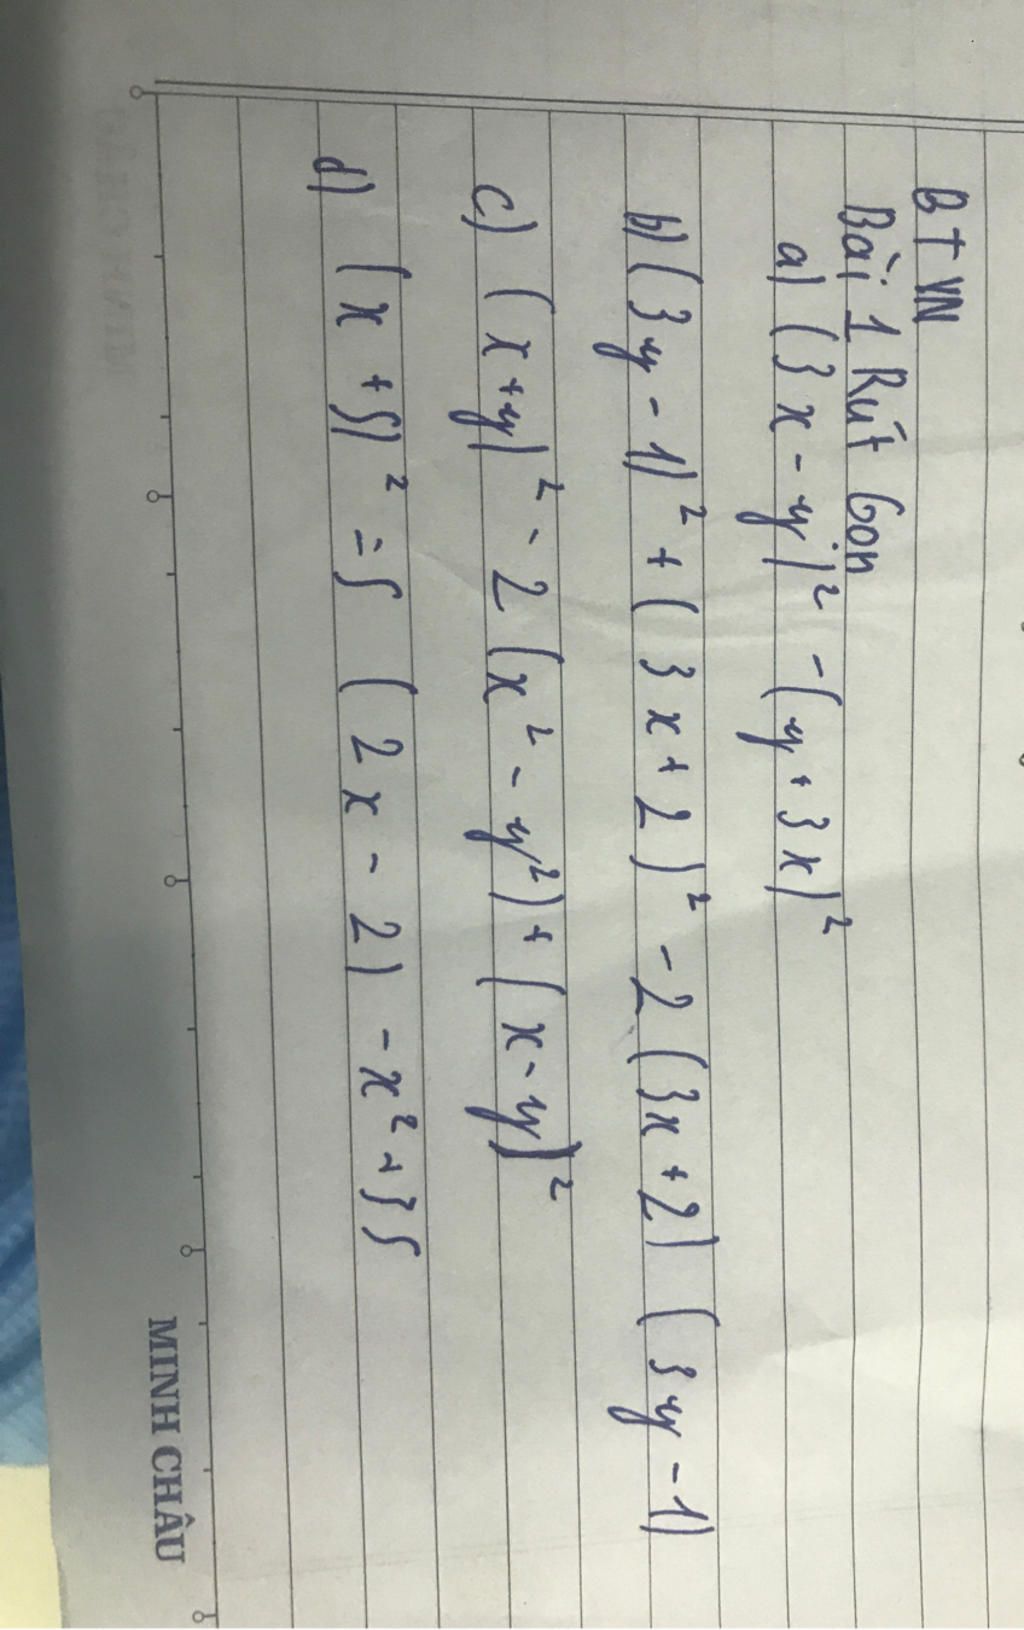 BTVN
Bài 1 Rút Gọn
a) (3x-y)² -(y+3x)²
b) (3y-1)² + (3x+2)² -2 (3x+2) (3y-1)
c) (x+y)² - 2 (x² - y²) + (x-y)²
d) (x +5)² = 5 (2x - 2) - x² + 35
MINH CHÂU